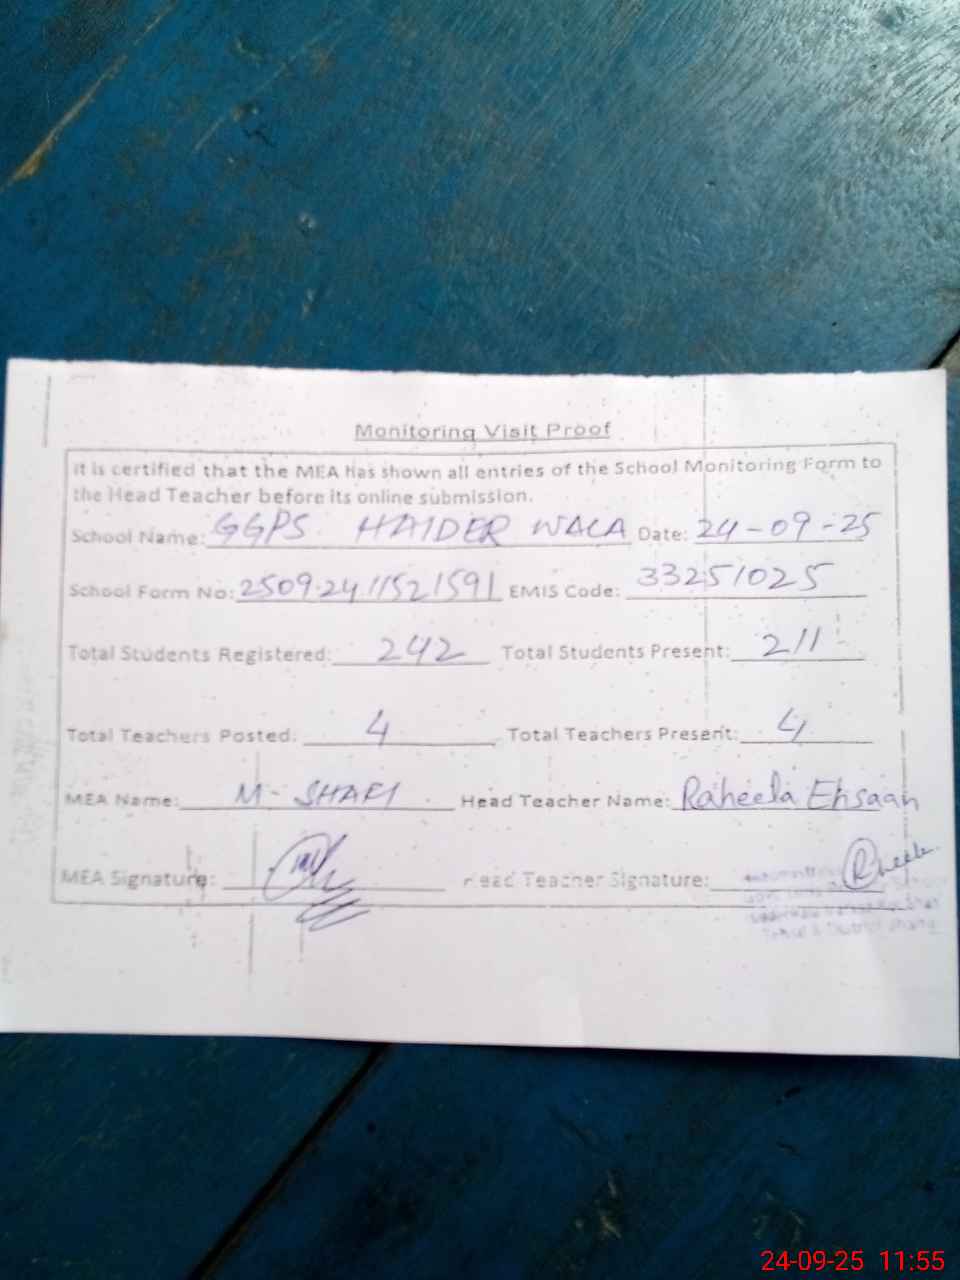 Monitoring Visit Proof
It is certified that the MEA has shown all entries of the School Monitoring Form to
the Head Teacher before its online submission.
School Name: GGPS HAIDER WALA Date: 24-09-25
School Form No: 25092411521591 EMIS Code: 33251025
Total Students Registered: 242 Total Students Present: 211
Total Teachers Posted: 4 Total Teachers Present: 4
MEA Name: M. SHAFI Head Teacher Name: Raheela Ehsaan
MEA Signature: Head Teacher Signature: Raheela
Tehsil & District Jhang
24-09-25 11:55